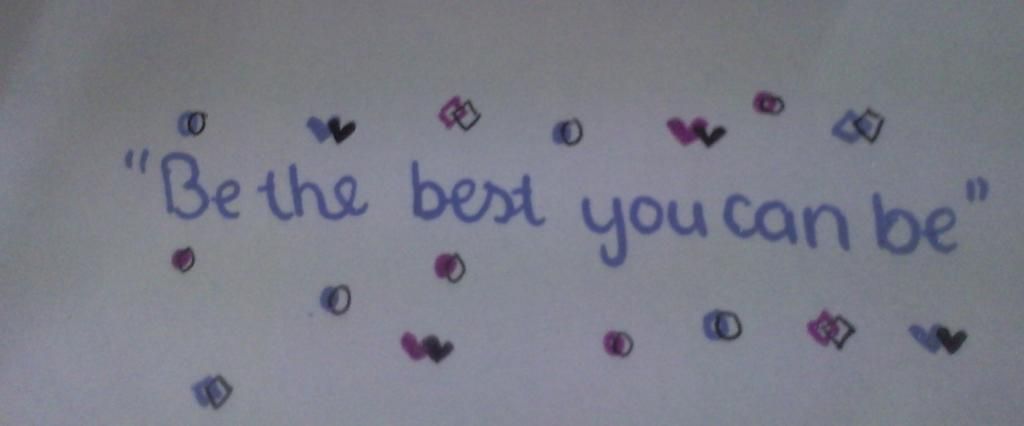 "Be the best you can be"